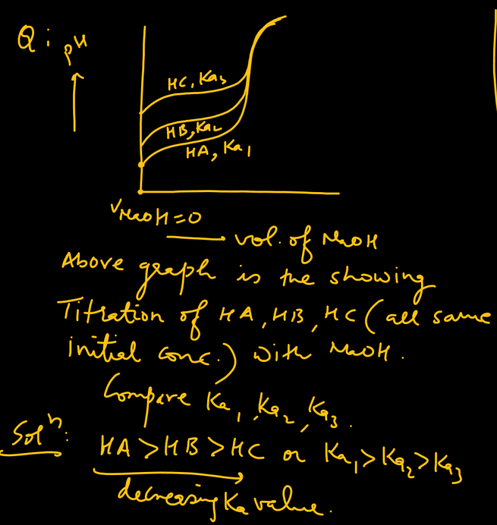 Q: pH
HC, Ka3
HB, Ka2
HA, Ka1
VNaOH=0
vol. of NaOH
Above graph is the showing
Titration of HA, HB, HC (all same
initial conc.) with NaOH.
Compare Ka1, Ka2, Ka3.
Solⁿ: HA > HB > HC or Ka1 > Ka2 > Ka3
decreasing Ka value.